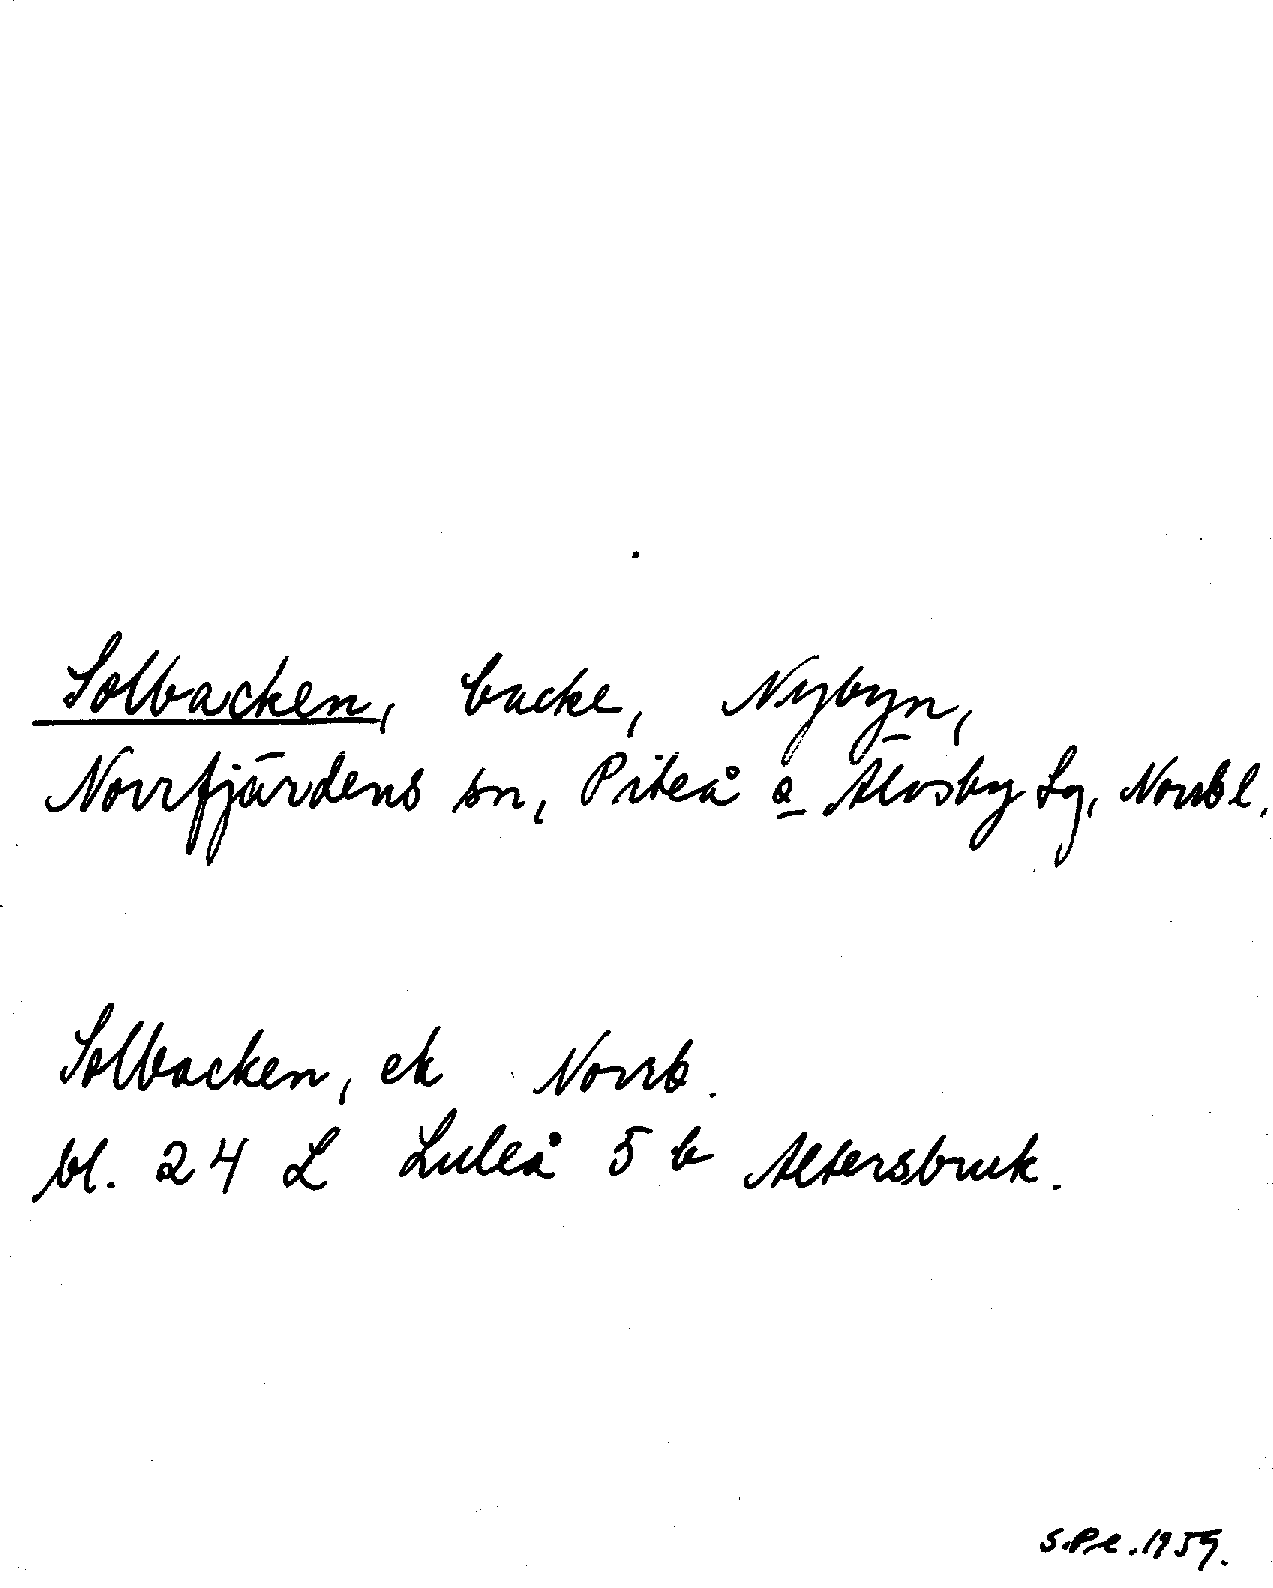 Solbacken, backe, Nybyn,
Norrfjärdens sn, Piteå o Älvsby tg, Norrb l.
Solbacken, ek Norrb.
bl. 24 L Luleå 5 b Altersbruk.
S.Pe.1959.